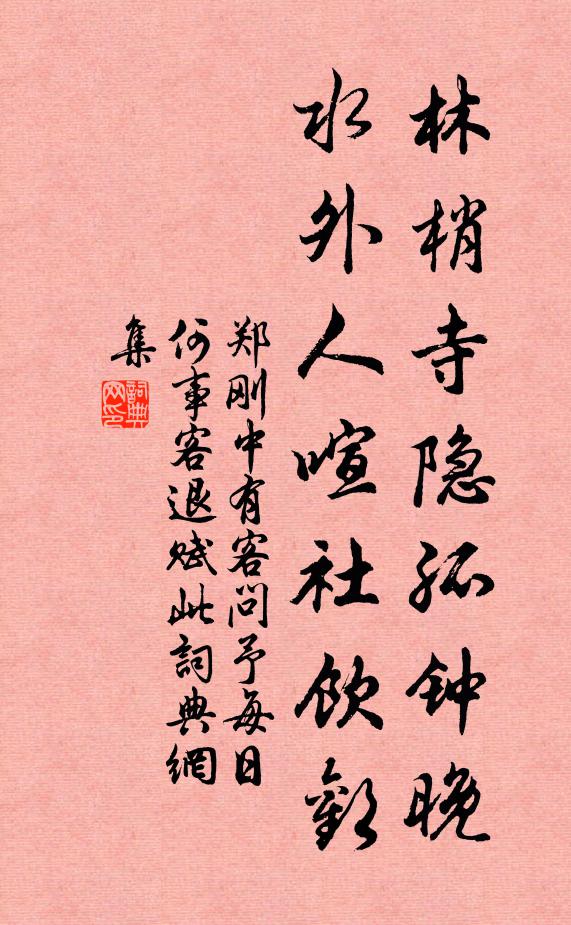 林梢寺隐孤钟晚
水外人喧社饮欢
郑刚中有客问予每日
何事客退赋此詞典網
集
詞典網印